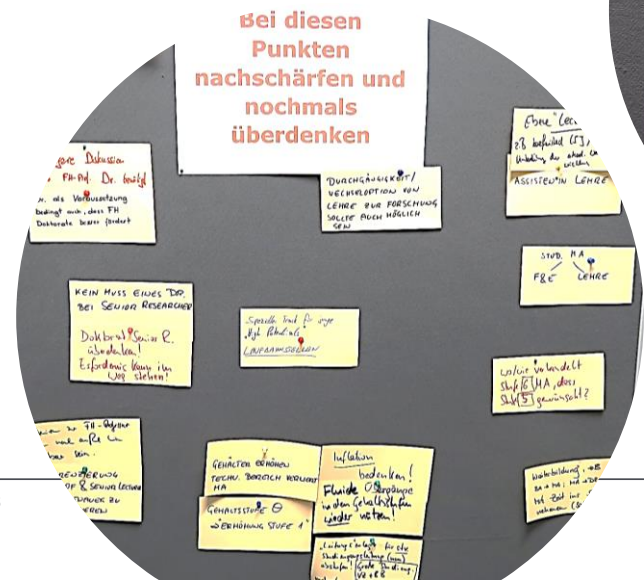 Bei diesen
Punkten
nachschärfen und
nochmals
überdenken
Diskussion
FH-Prof. Dr.
als Voraussetzung
bedingt auch, dass FH
Doktorate besser fördert
DURCHGÄNGIGKEIT/
WECHSELOPTION VON
LEHRE ZUR FORSCHUNG
SOLLTE AUCH MÖGLICH
SEIN
Ebene
z.B. befristet (5J)
ASSISTENT*IN LEHRE
STUD. MA
F&E LEHRE
KEIN MUSS EINES DR.
BEI SENIOR RESEARCHER
Doktorat Senior R.
überdenken!
Erfordernis kann im
Weg stehen!
Spezieller Track für junge
"High Potentials"
LAUFBAHNSTELLEN
wo/wie verhandelt
Stufe 6 MA, dass
Stufe 5 gewünscht?
GEHÄLTER ERHÖHEN
TECHN. BEREICH VERLIERT
MA
GEHALTSSTUFE
ERHÖHUNG STUFE 1
Inflation
bedenken!
Fluide Übergänge
in den Gehaltsstufen
wieder nützen!
für
Weiterbildung
mit Zeit ins